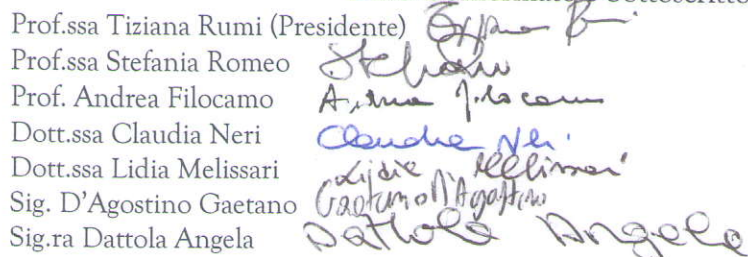 sottoscritto
Prof.ssa Tiziana Rumi (Presidente)
Prof.ssa Stefania Romeo Stefania
Prof. Andrea Filocamo Andrea Filocamo
Dott.ssa Claudia Neri Claudia Neri
Dott.ssa Lidia Melissari Lidia Melissari
Sig. D'Agostino Gaetano Gaetano D'Agostino
Sig.ra Dattola Angela Dattola Angela